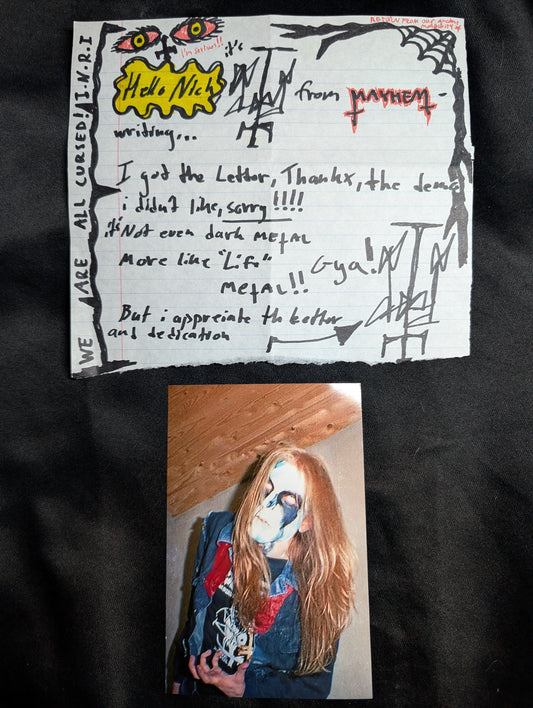 I'm serious!!
WE ARE ALL CURSED! I.N.R.I
Hello Nick
it's
from MAYHEM -
writing...
I got the Letter, Thankx, the demo
i didn't like, sorry!!!!
it's Not even dark METAL
More like "Life"
METAL!!
Gya!
But i appreciate th letter
and dedication